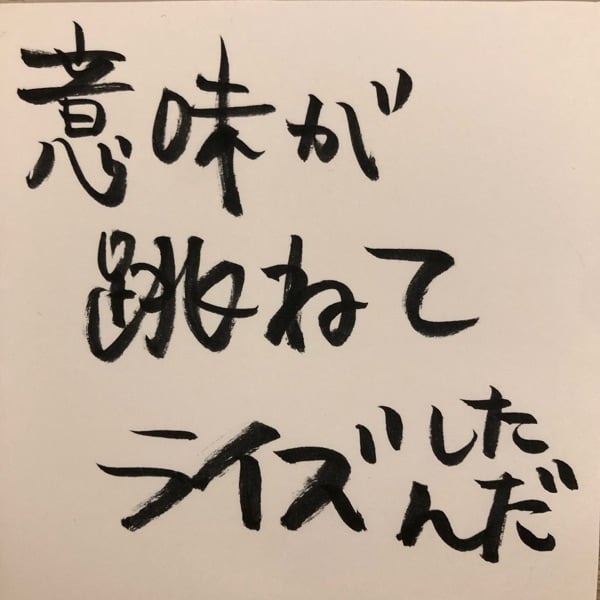 意味が
跳ねて
ライズした
んだ